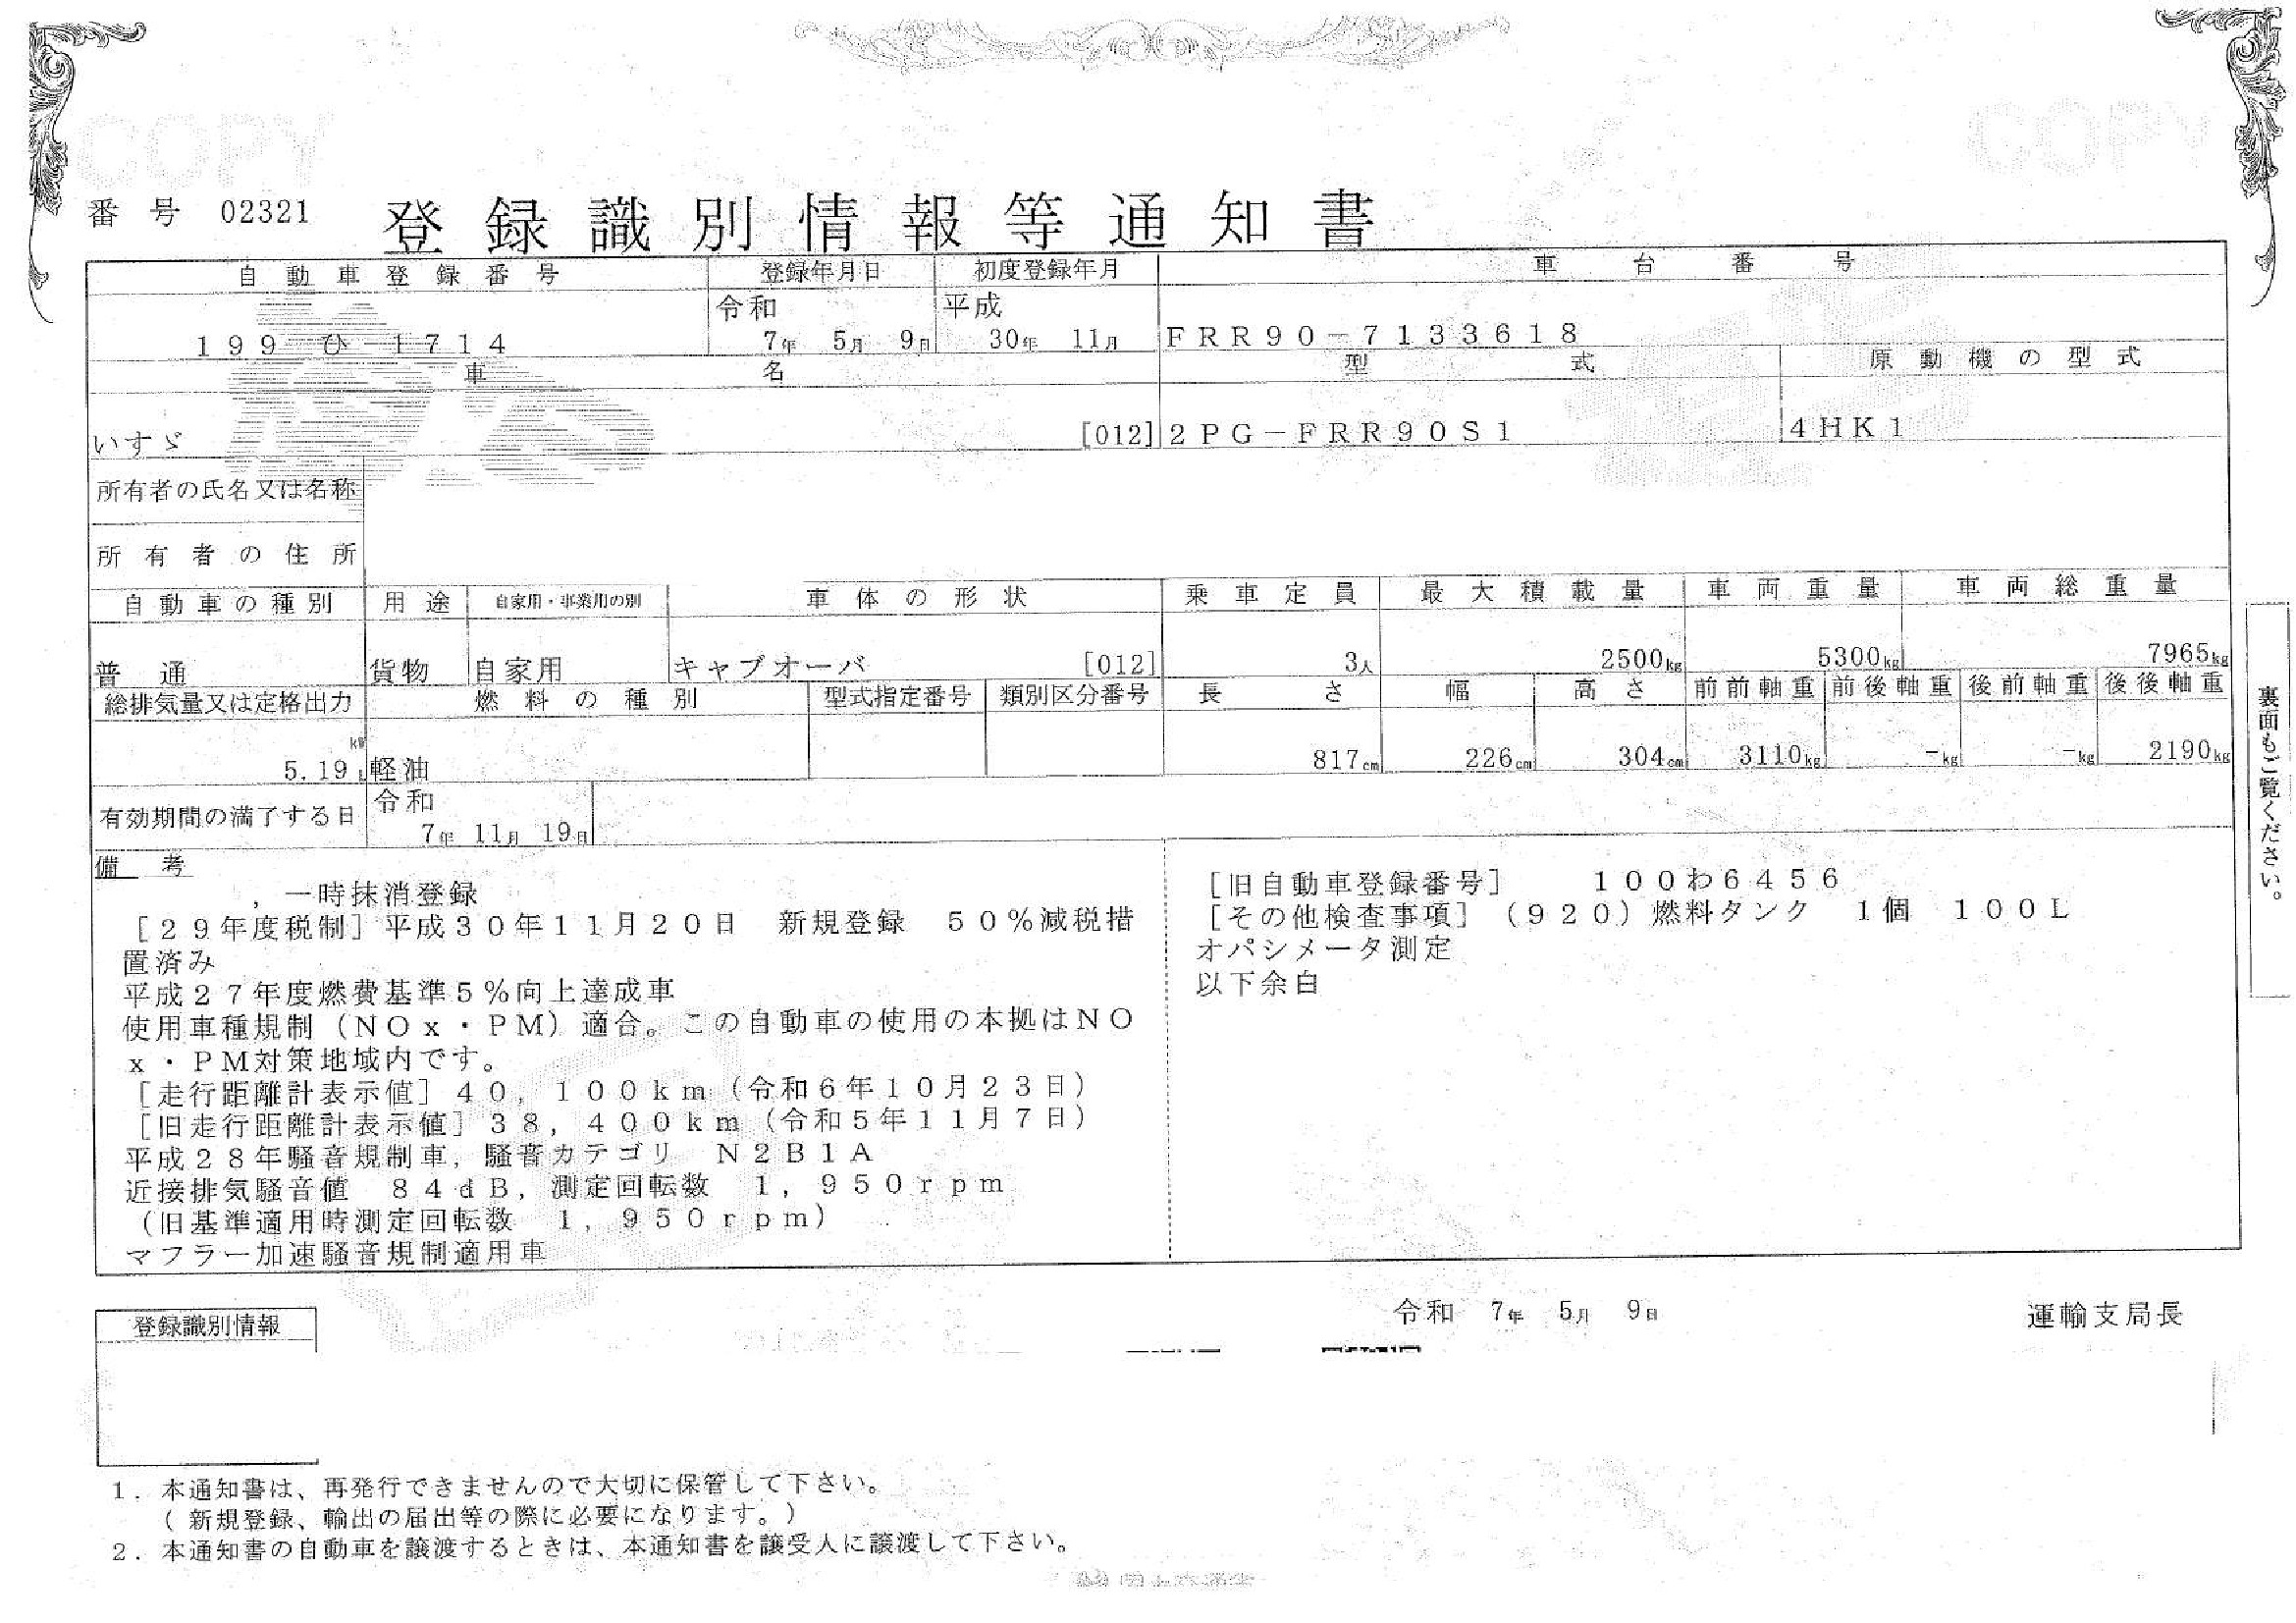 COPY
COPY
番号 02321
登録識別情報等通知書
自動車登録番号 登録年月日 初度登録年月 車台番号
令和 平成
199 ひ 1714 7年 5月 9日 30年 11月 FRR90-7133618
車名 型式 原動機の型式
いすゞ [012] 2PG-FRR90S1 4HK1
所有者の氏名又は名称
所有者の住所
自動車の種別 用途 自家用・事業用の別 車体の形状 乗車定員 最大積載量 車両重量 車両総重量
普通 貨物 自家用 キャブオーバ [012] 3人 2500kg 5300kg 7965kg
総排気量又は定格出力 燃料の種別 型式指定番号 類別区分番号 長さ 幅 高さ 前前軸重 前後軸重 後前軸重 後後軸重
kW
5.19 L 軽油 817cm 226cm 304cm 3110kg -kg -kg 2190kg
有効期間の満了する日 令和
7年 11月 19日
備考
，一時抹消登録
[29年度税制]平成30年11月20日 新規登録 50%減税措
置済み
平成27年度燃費基準5%向上達成車
使用車種規制（NOx・PM）適合。この自動車の使用の本拠はNO
x・PM対策地域内です。
[走行距離計表示値]40，100km（令和6年10月23日）
[旧走行距離計表示値]38，400km（令和5年11月7日）
平成28年騒音規制車，騒音カテゴリ N2B1A
近接排気騒音値 84dB，測定回転数 1，950rpm
（旧基準適用時測定回転数 1，950rpm）
マフラー加速騒音規制適用車
[旧自動車登録番号] 100わ6456
[その他検査事項]（920）燃料タンク 1個 100L
オパシメータ測定
以下余白
裏面もご覧ください。
令和 7年 5月 9日 運輸支局長
登録識別情報
1．本通知書は、再発行できませんので大切に保管して下さい。
（新規登録、輸出の届出等の際に必要になります。）
2．本通知書の自動車を譲渡するときは、本通知書を譲受人に譲渡して下さい。